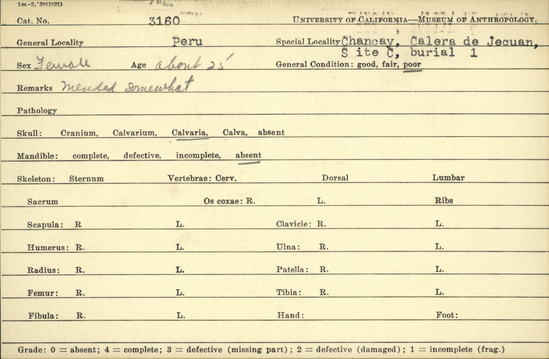 1m-2,'38(1921)
Cat. No. 3160 UNIVERSITY OF CALIFORNIA—MUSEUM OF ANTHROPOLOGY
General Locality Peru Special Locality Chancay, Calera de Jecuan,
S ite C, burial 1
Sex Female Age about 25 General Condition: good, fair, poor
Remarks Mended somewhat
Pathology
Skull: Cranium, Calvarium, Calvaria, Calva, absent
Mandible: complete, defective, incomplete, absent
Skeleton: Sternum Vertebrae: Cerv. Dorsal Lumbar
Sacrum Os coxae: R. L. Ribs
Scapula: R L. Clavicle: R. L.
Humerus: R. L. Ulna: R. L.
Radius: R. L. Patella: R. L.
Femur: R. L. Tibia: R. L.
Fibula: R. L. Hand: Foot:
Grade: 0 = absent; 4 = complete; 3 = defective (missing part); 2 = defective (damaged); 1 = incomplete (frag.)